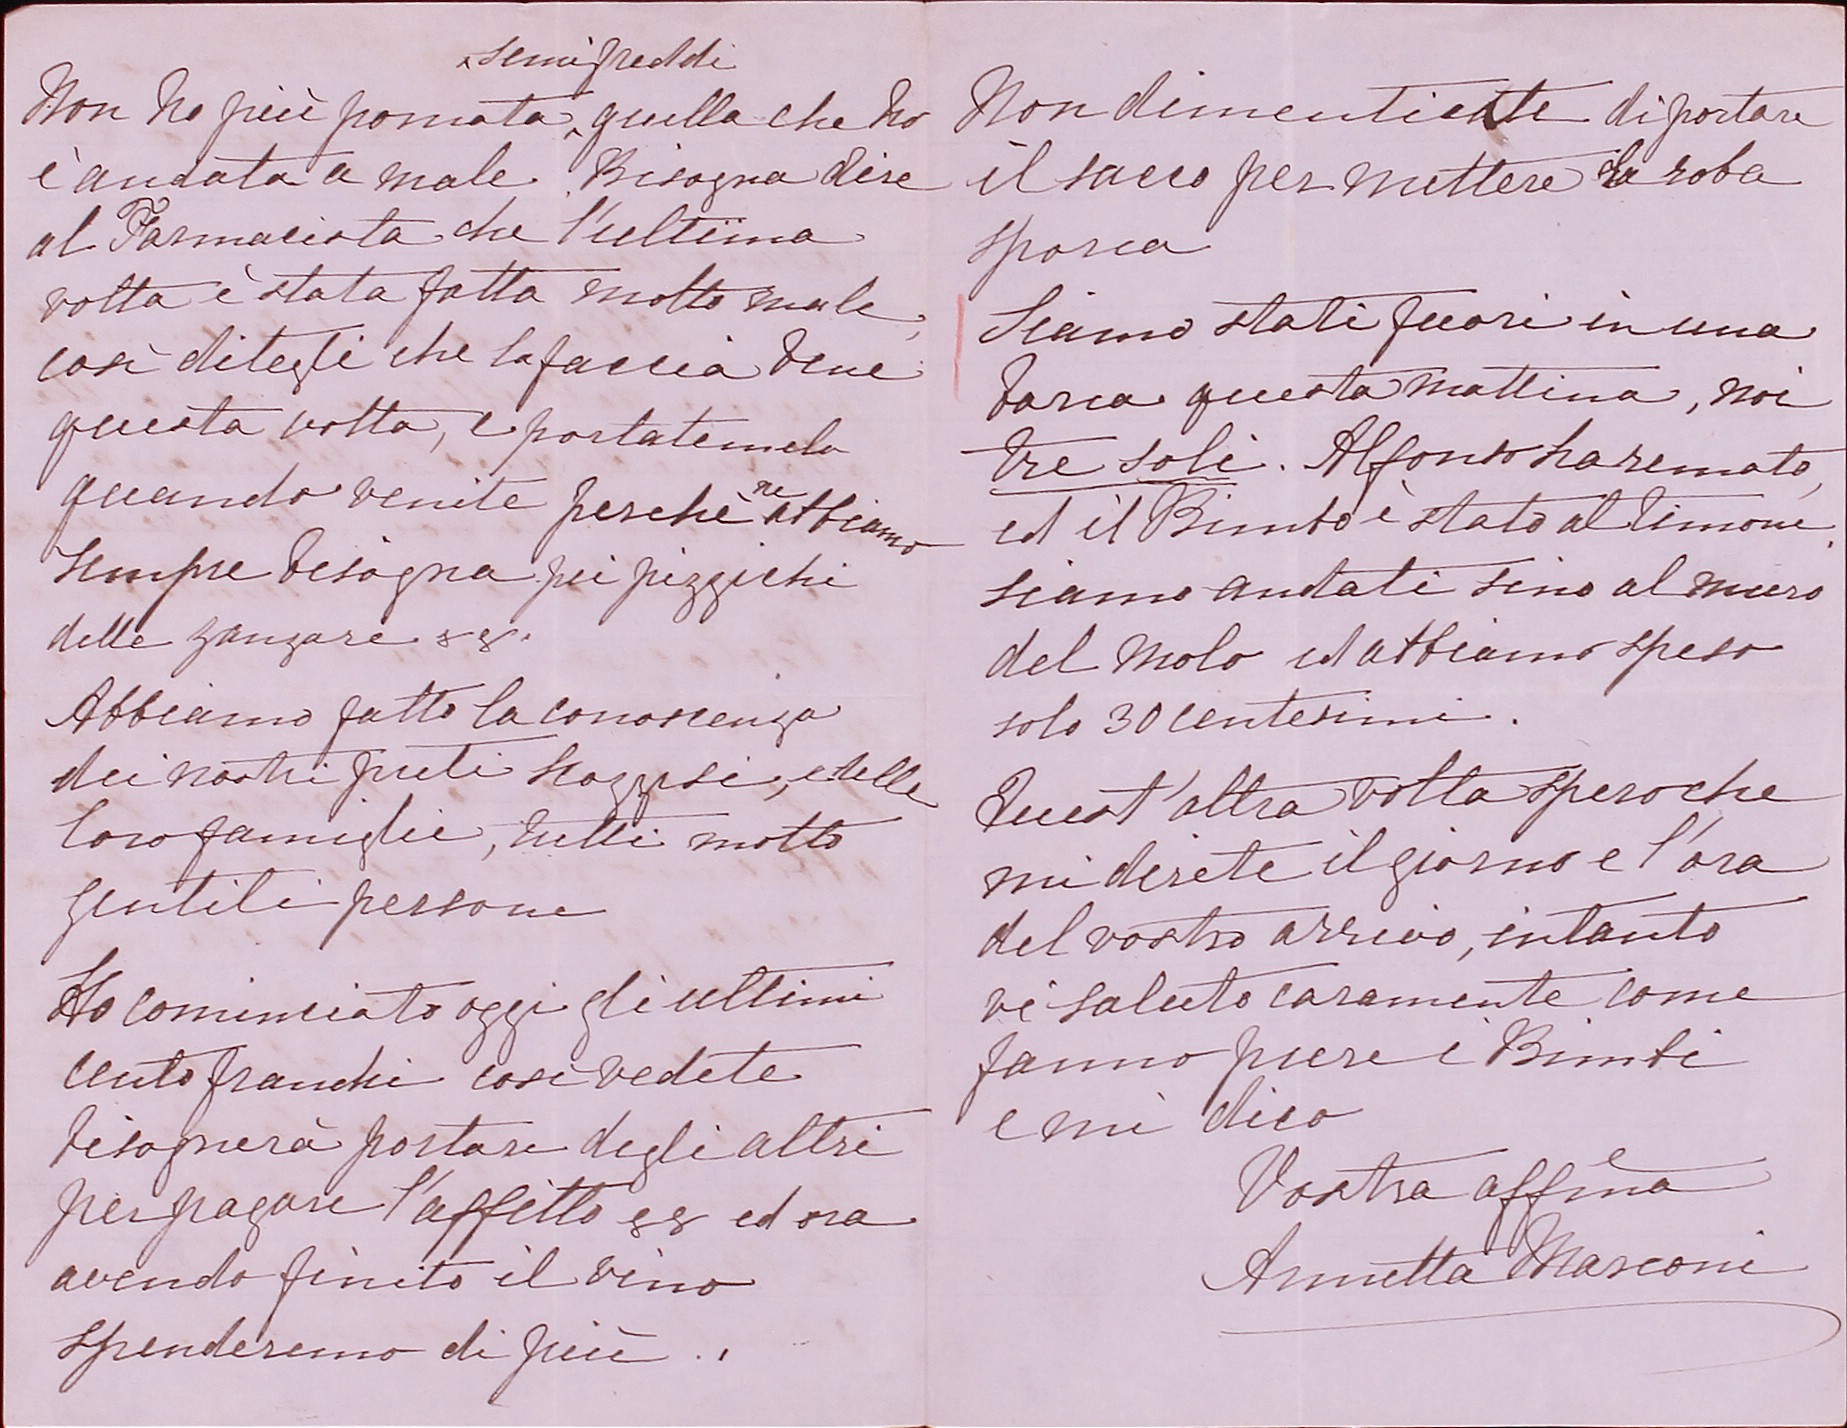 semifreddi
Non ho più pomata, quella che ho
è andata a male. Bisogna dire
al Farmacista che l'ultima
volta è stata fatta molto male,
così ditegli che la faccia bene
questa volta, e portatemela
quando venite perchè ne abbiamo
sempre bisogna pei pizzichi
delle zanzare &&.
Abbiamo fatto la conoscenza
dei nostri preti Scozzesi, e delle
loro famiglie, tutti molto
gentili persone
Ho cominciato oggi gli ultimi
cento franchi così vedete
bisognerà portare degli altri
per pagare l'affitto && ed ora
avendo finito il vino
spenderemo di più ..
Non dimenticate di portare
il sacco per mettere la roba
sporca
Siamo stati fuori in una
barca questa mattina, noi
tre soli. Alfonso ha remato,
ed il Bimbo è stato al timone.
siamo andati sino al muro
del Molo ed abbiamo speso
solo 30 centesimi.
Quest'altra volta spero che
mi direte il giorno e l'ora
del vostro arrivo, intanto
vi saluto caramente come
fanno pure i Bimbi
e mi dico
Vostra affina
Annetta Marconi